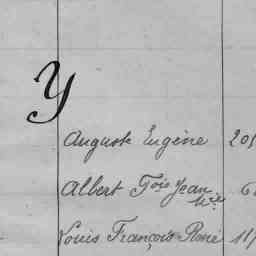 Y
Auguste Eugène 205
Albert Fois Jean 6
Mie
Louis François René 11